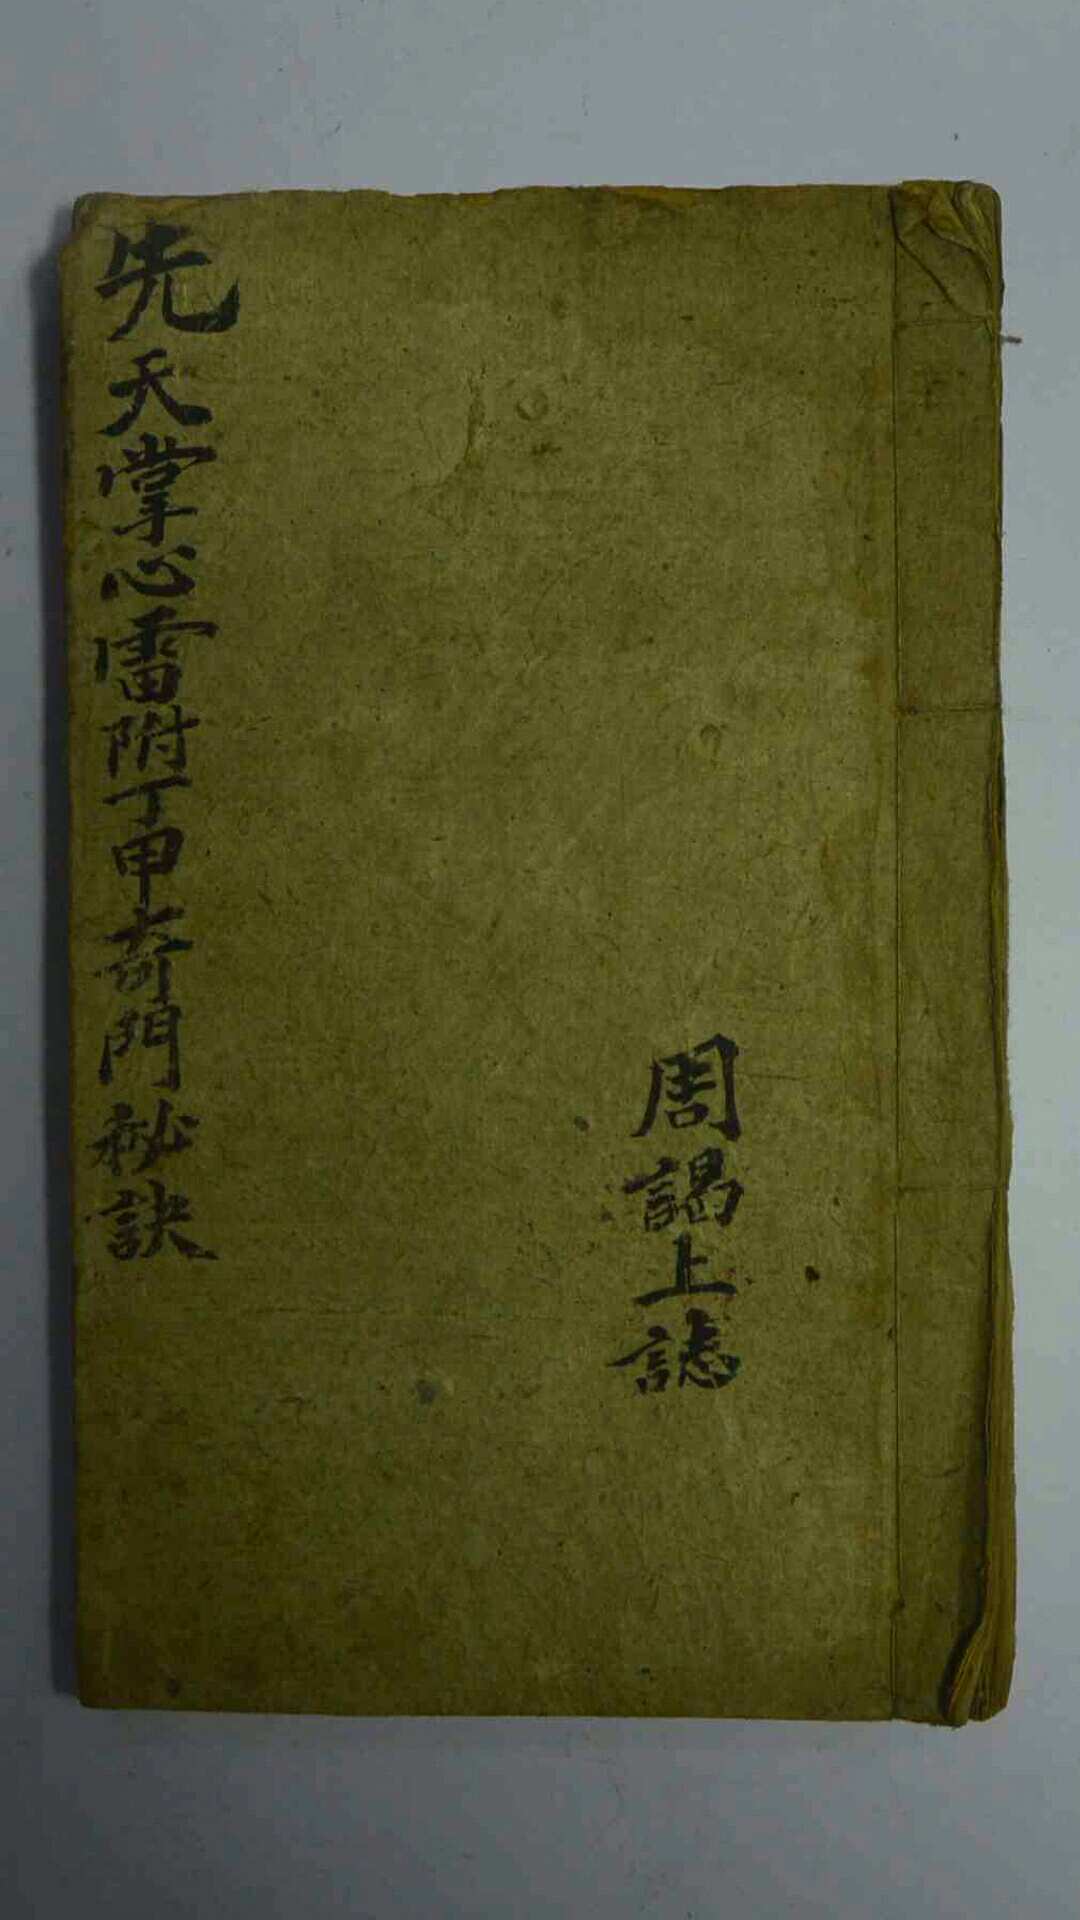 周謁上誌
先天掌心雷附丁甲奇門秘訣